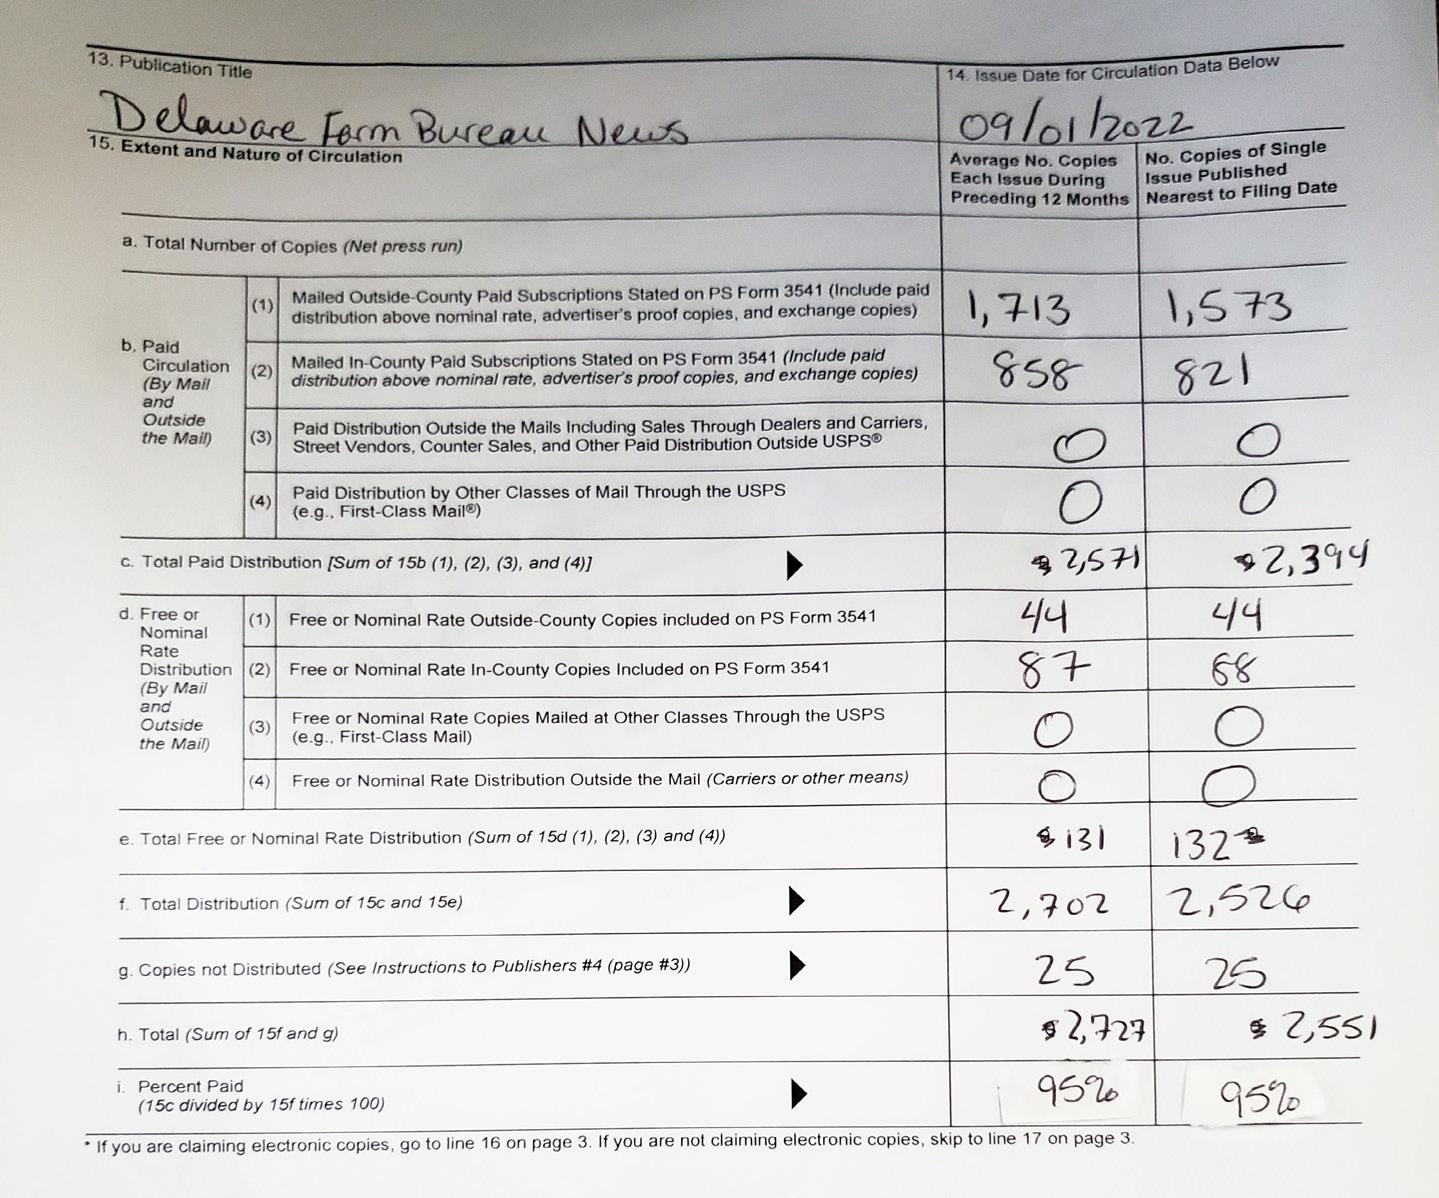 13. Publication Title
14. Issue Date for Circulation Data Below
Delaware Farm Bureau News
09/01/2022
15. Extent and Nature of Circulation
Average No. Copies
Each Issue During
Preceding 12 Months
No. Copies of Single
Issue Published
Nearest to Filing Date
a. Total Number of Copies (Net press run)
b. Paid
Circulation
(By Mail
and
Outside
the Mail)
(1)
Mailed Outside-County Paid Subscriptions Stated on PS Form 3541 (Include paid
distribution above nominal rate, advertiser's proof copies, and exchange copies)
1,713
1,573
(2)
Mailed In-County Paid Subscriptions Stated on PS Form 3541 (Include paid
distribution above nominal rate, advertiser's proof copies, and exchange copies)
858
821
(3)
Paid Distribution Outside the Mails Including Sales Through Dealers and Carriers,
Street Vendors, Counter Sales, and Other Paid Distribution Outside USPS®
0
0
(4)
Paid Distribution by Other Classes of Mail Through the USPS
(e.g., First-Class Mail®)
0
0
c. Total Paid Distribution [Sum of 15b (1), (2), (3), and (4)]
2,571
2,394
d. Free or
Nominal
Rate
Distribution
(By Mail
and
Outside
the Mail)
(1)
Free or Nominal Rate Outside-County Copies included on PS Form 3541
44
44
(2)
Free or Nominal Rate In-County Copies Included on PS Form 3541
87
88
(3)
Free or Nominal Rate Copies Mailed at Other Classes Through the USPS
(e.g., First-Class Mail)
0
0
(4)
Free or Nominal Rate Distribution Outside the Mail (Carriers or other means)
0
0
e. Total Free or Nominal Rate Distribution (Sum of 15d (1), (2), (3) and (4))
131
132
f. Total Distribution (Sum of 15c and 15e)
2,702
2,526
g. Copies not Distributed (See Instructions to Publishers #4 (page #3))
25
25
h. Total (Sum of 15f and g)
2,727
2,551
i. Percent Paid
(15c divided by 15f times 100)
95%
95%
* If you are claiming electronic copies, go to line 16 on page 3. If you are not claiming electronic copies, skip to line 17 on page 3.